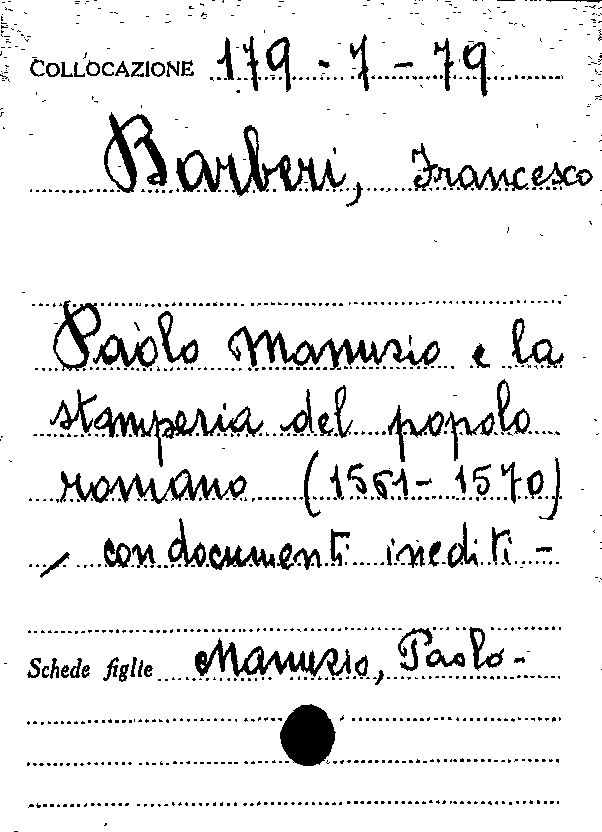 COLLOCAZIONE 179-7-79
Barberi, Francesco
Paolo Manuzio e la
stamperia del popolo
romano (1561-1570)
, con documenti inediti -
Schede figlie Manuzio, Paolo -